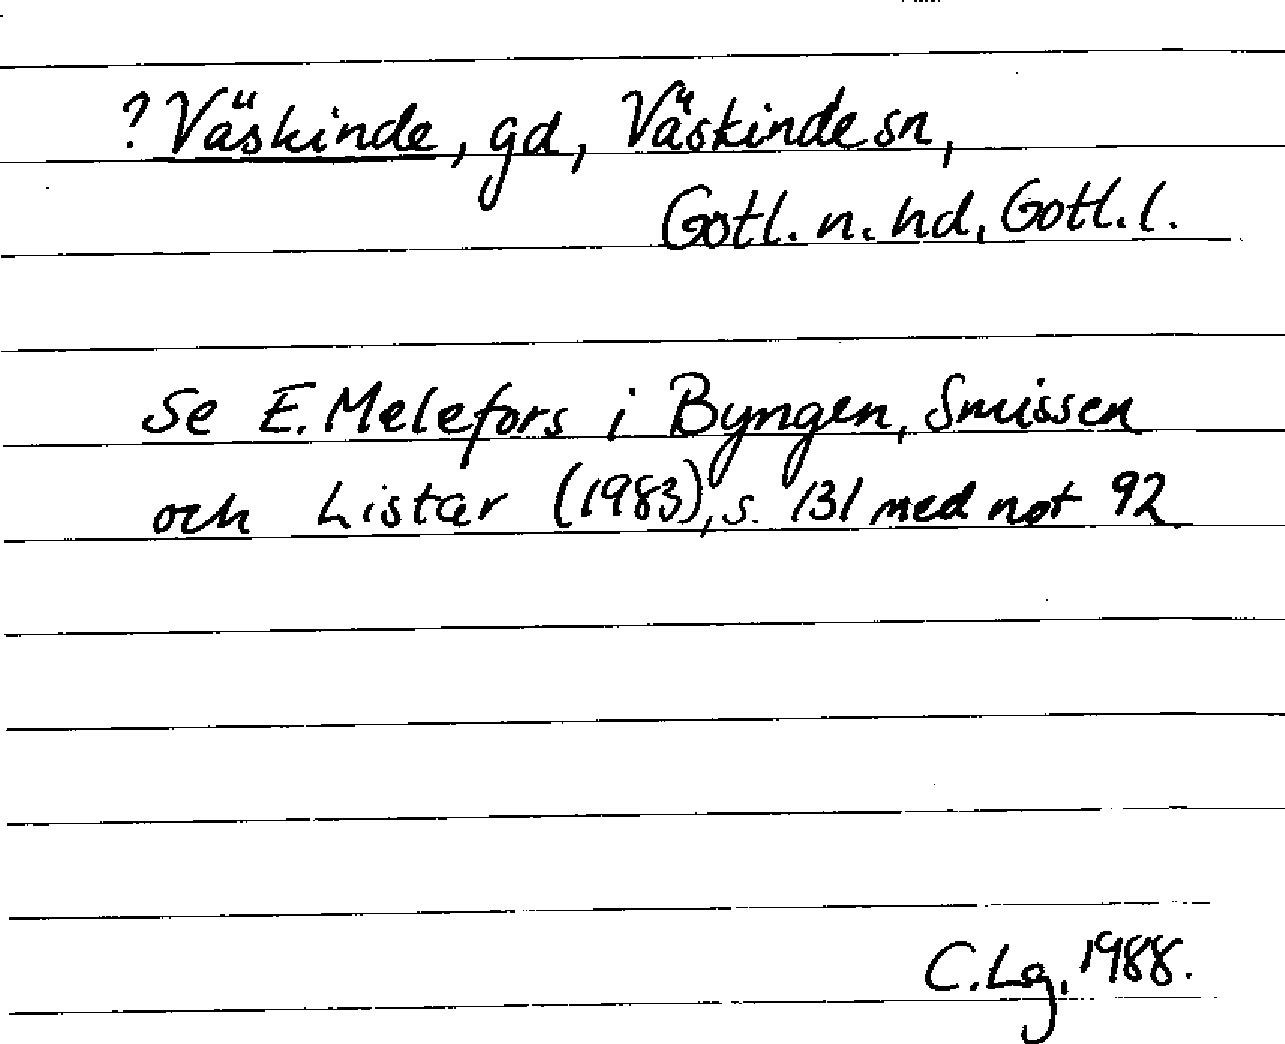 ? Väskinde, gd, Väskinde sn,
Gotl. n. hd, Gotl. l.
Se E. Melefors i Byngen, Smissen
och Listar (1983), s. 131 med not 92
C. Lg, 1988.